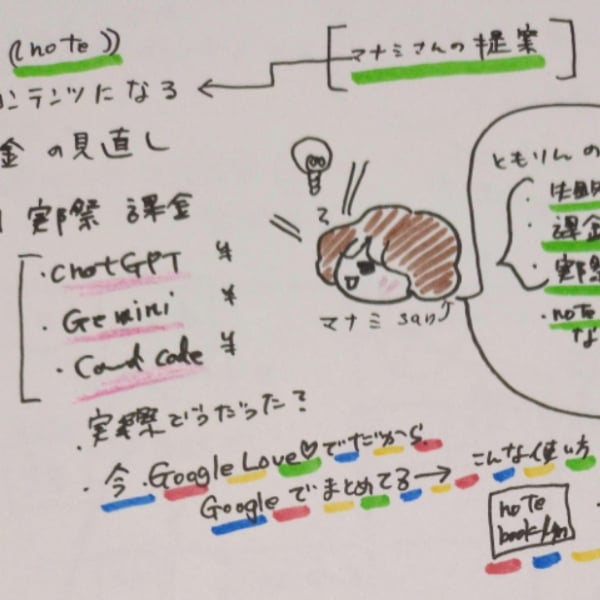 ((note))
[マナミさんの提案]
コンテンツになる
金の見直し
実際 課金
・ChatGPT ¥
・Gemini ¥
・Claud code ¥
・実際どうだった?
・今.Google Love♡でだから
Googleでまとめてる→こんな使い方
note
book/lm
マナミsan
ともりんの
・課金
・実際
・note
な